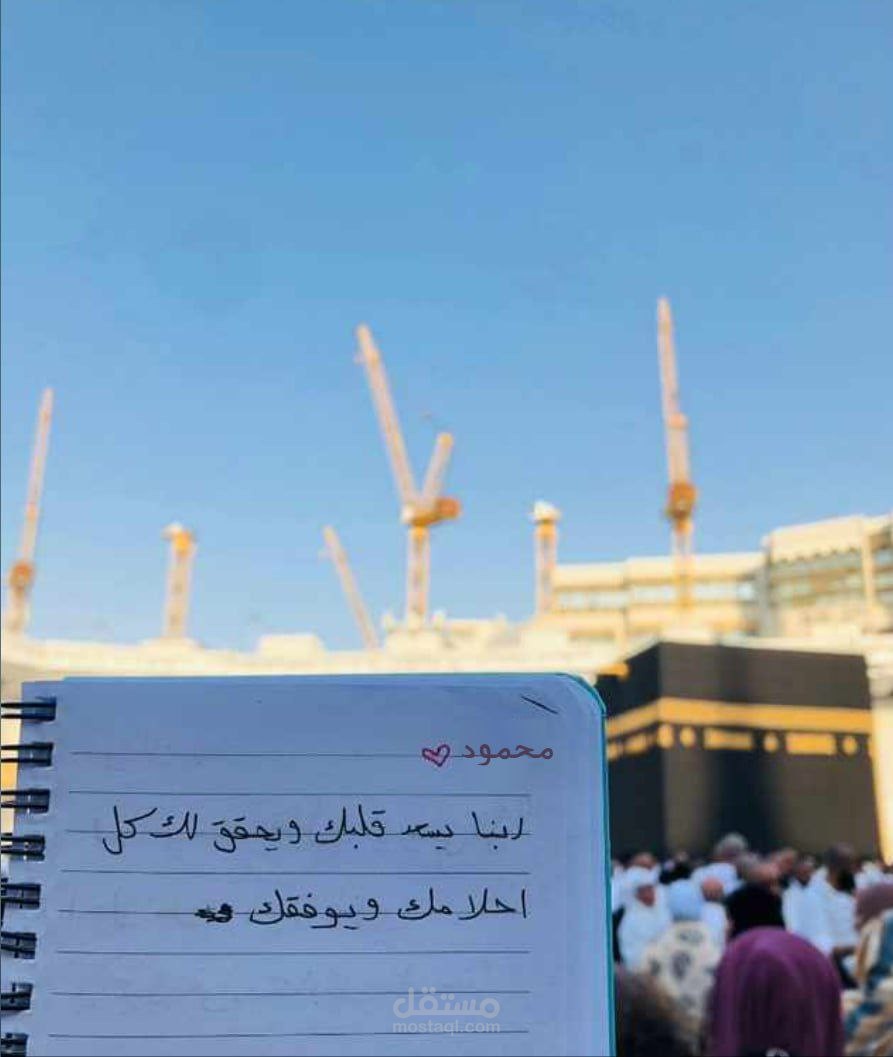 محمود
ربنا يسعد قلبك ويحقق لك كل
احلامك ويوفقك
مستقل
mostaql.com